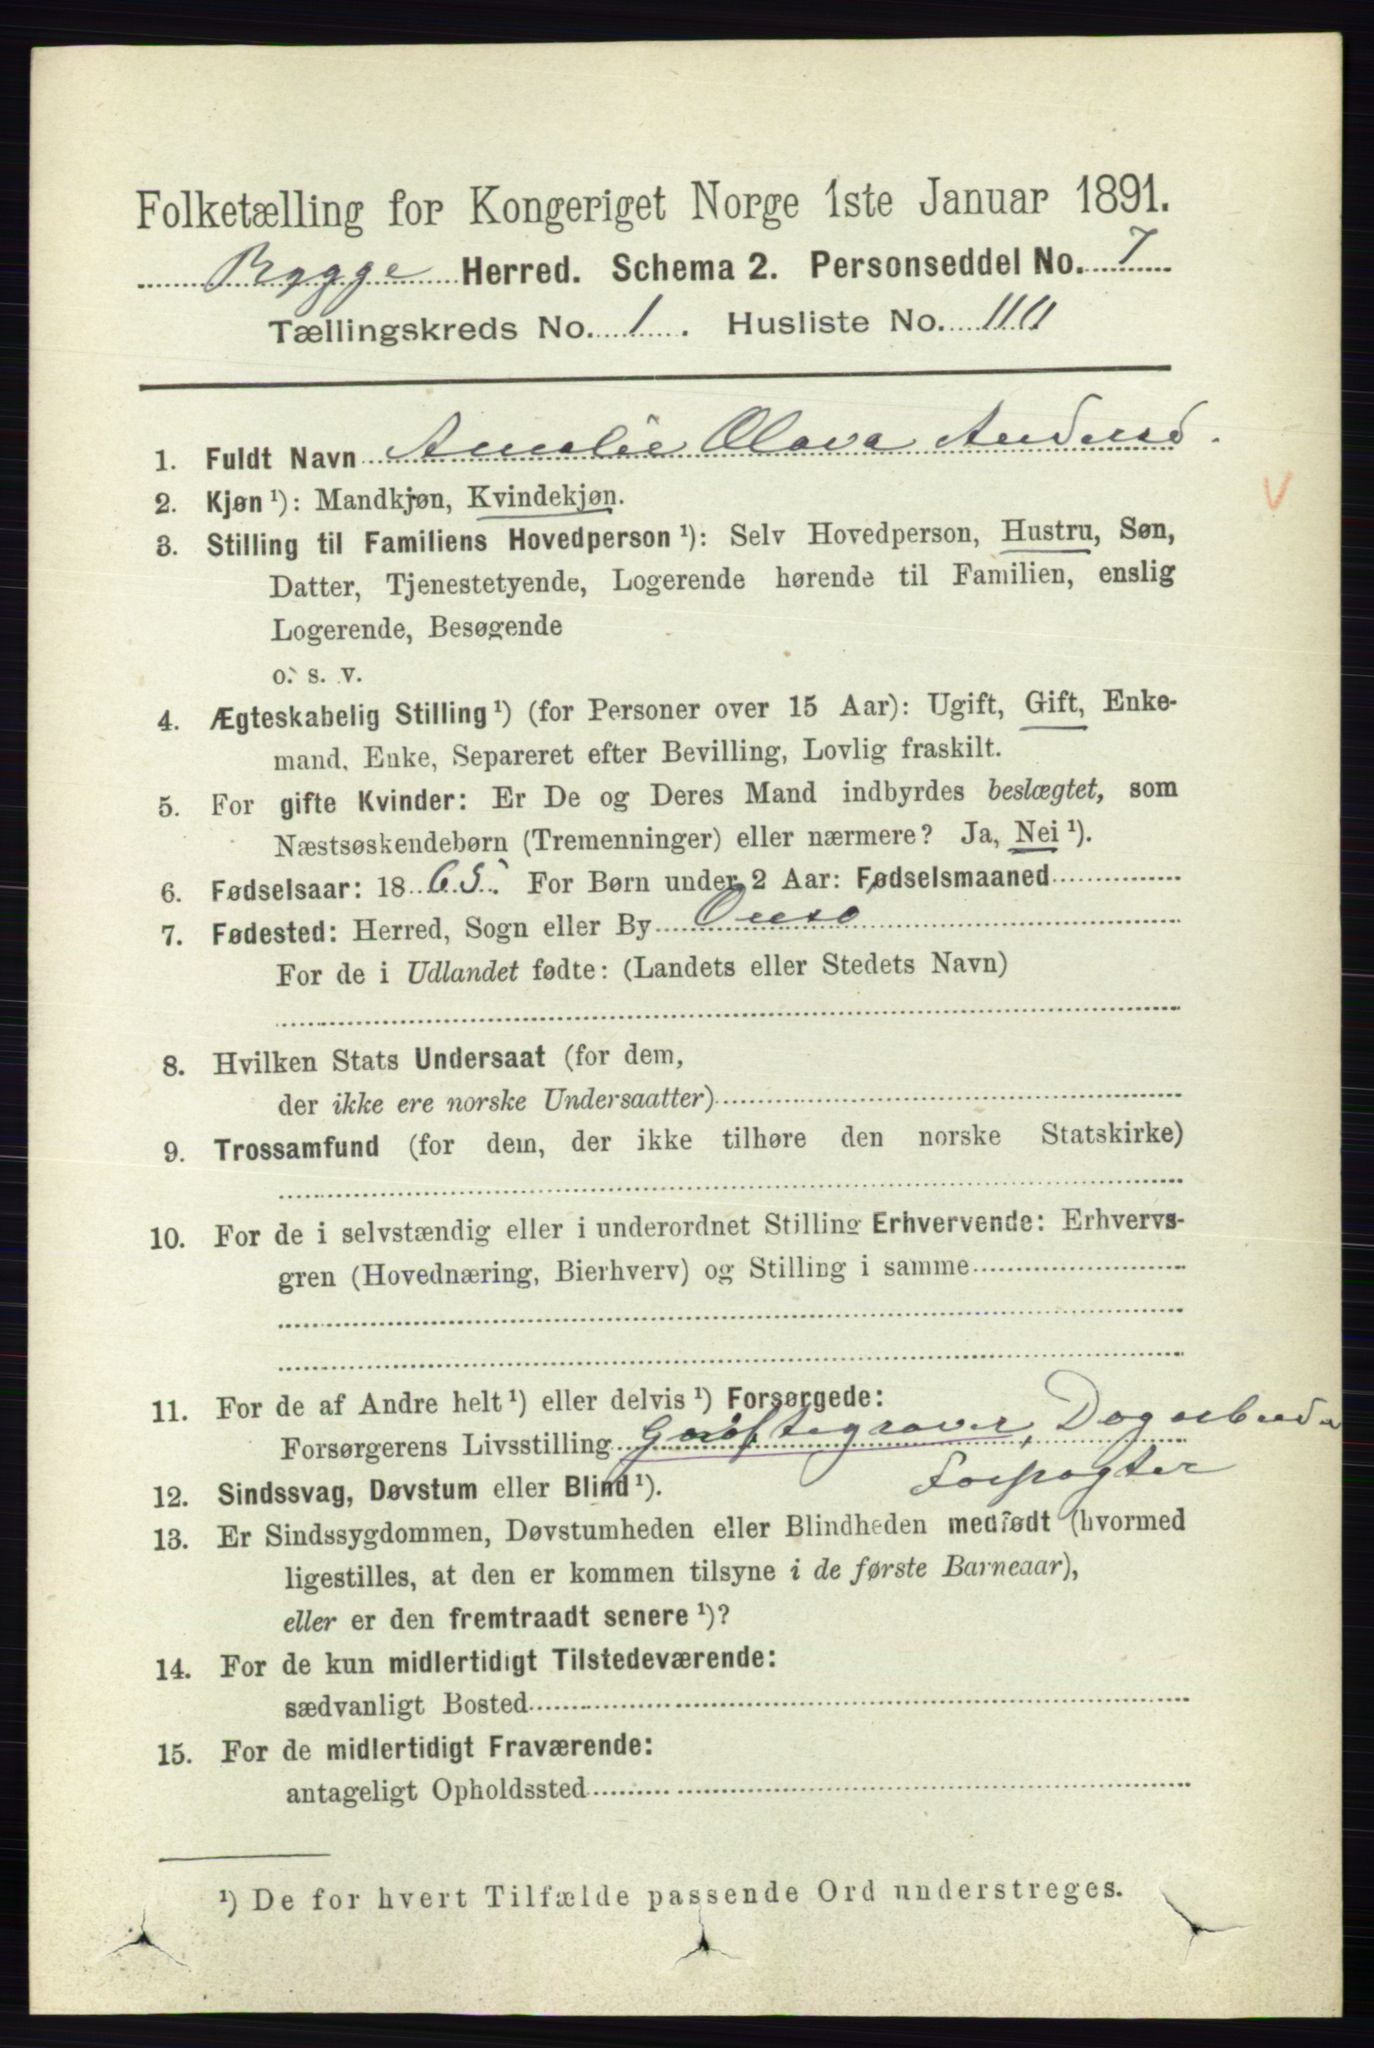 Folketælling for Kongeriget Norge 1ste Januar 1891.
Rygge Herred. Schema 2. Personseddel No. 7
Tællingskreds No. 1. Husliste No. 111
1. Fuldt Navn Amalie Olava Anders
2. Kjøn ¹): Mandkjøn, Kvindekjøn.
3. Stilling til Familiens Hovedperson ¹): Selv Hovedperson, Hustru, Søn,
Datter, Tjenestetyende, Logerende hørende til Familien, enslig
Logerende, Besøgende
o. s. v.
4. Ægteskabelig Stilling ¹) (for Personer over 15 Aar): Ugift, Gift, Enke-
mand, Enke, Separeret efter Bevilling, Lovlig fraskilt.
5. For gifte Kvinder: Er De og Deres Mand indbyrdes beslægtet, som
Næstsøskendebørn (Tremenninger) eller nærmere? Ja, Nei ¹).
6. Fødselsaar: 1865. For Børn under 2 Aar: Fødselsmaaned
7. Fødested: Herred, Sogn eller By Onsø
For de i Udlandet fødte: (Landets eller Stedets Navn)
8. Hvilken Stats Undersaat (for dem,
der ikke ere norske Undersaatter)
9. Trossamfund (for dem, der ikke tilhøre den norske Statskirke)
10. For de i selvstændig eller i underordnet Stilling Erhvervende: Erhvervs-
gren (Hovednæring, Bierhverv) og Stilling i samme
11. For de af Andre helt ¹) eller delvis ¹) Forsørgede:
Forsørgerens Livsstilling Grøftegraver, Dagarbeider
Forpagter
12. Sindssvag, Døvstum eller Blind ¹).
13. Er Sindssygdommen, Døvstumheden eller Blindheden medfødt (hvormed
ligestilles, at den er kommen tilsyne i de første Barneaar),
eller er den fremtraadt senere ¹)?
14. For de kun midlertidigt Tilstedeværende:
sædvanligt Bosted
15. For de midlertidigt Fraværende:
antageligt Opholdssted
¹) De for hvert Tilfælde passende Ord understreges.